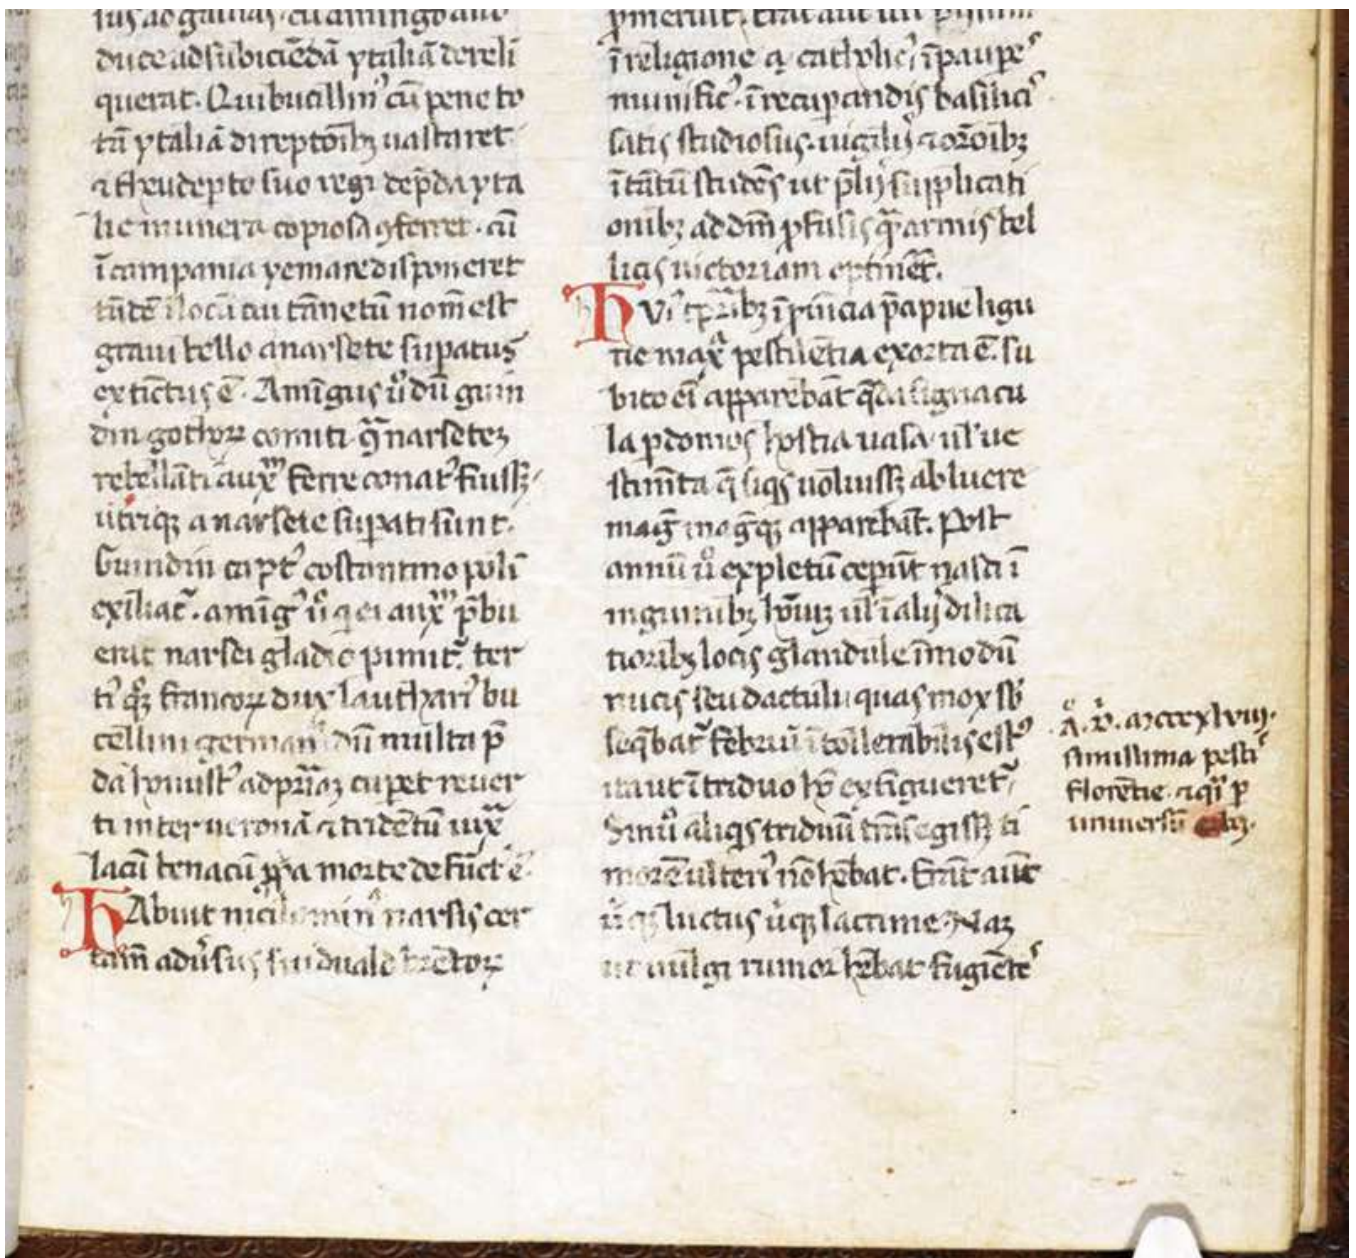 duce ad subiciēdā ytaliā dereli
querat. Qui bucillin᾽ cū pene to
tā ytaliā direptōibȝ uastaret
⁊ theudepto suo regi de p̄da yta
lie munera copiosa ꝯferret. cū
ī campania yemare disponeret
tādē ī locū cui tānetū nom̄ est
graui bello a narsete supatus
extīctus ē. Amīgus ů dū guin
din gothoꝝ comiti
rebellāti auxͫ ferre conat᾽ fuissȝ
utriqȝ a narsete supati sunt.
Guindin capt᾽ costantinopolī
exiliat᾽. amīg᾽ ů q ei auxͫ p̄bu
erat narsei gladio pimit᾽. ter
ti᾽ qͦȝ francoꝝ dux lauthari᾽ bu
cellini german᾽ dū multa p̄
da honust᾽ ad pr̄iaȝ cupet reuer
ti inter ueronā ⁊ tridētū iuxͣ
lacū benacū ꝓpa morte defūct᾽ ē.
HAbuit nicilomin᾽ narsis cer
tam̄ aduˀsus sinduald brētoꝝ
ī religione ⁊ catholic᾽ ī paupeˢ
munific᾽. ī recupandis basilicˢ
satis studiosus. uigiliˢ ⁊ or̄oibȝ
ī tātū studēs ut pl᾽ supplicati
onibȝ ad dm̄ ꝓfusis qͣ armis bel
licis uictoriam optinēt.
HVi᾽ tp̄ribȝ ī ꝓuīcia p̄apue ligu
rie maxͣ pestilētia exorta ē. su
bito ei᾽ apparebāt qͣda signacu
la p domos hostia uasa. ul᾽ ue
stimīta q̄ siqͥs uoluissȝ abluere
mag᾽ magqȝ apparebāt. Post
annū ů expletū cepit nasci ī
inguinibȝ hōīuȝ ul᾽ ī aliˢ delica
tioribȝ locis glandule ī modū
nucis seu dactuli. quas mox sb᾽
seq̄bat᾽ febriū ītollerabilis est᾽
ita ut ī triduo hō extīgueret᾽
Sin ů aliqͥs triduū trāsegissȝ
Erāt aūt
ůqȝ luctus ůqȝ lacrime. Naȝ
ut uulgi rumor hēbat fugiēteˢ
A. D. mcccxlviij.
simillima pestiˢ
florētie. ⁊ qͣi p
uniuersū